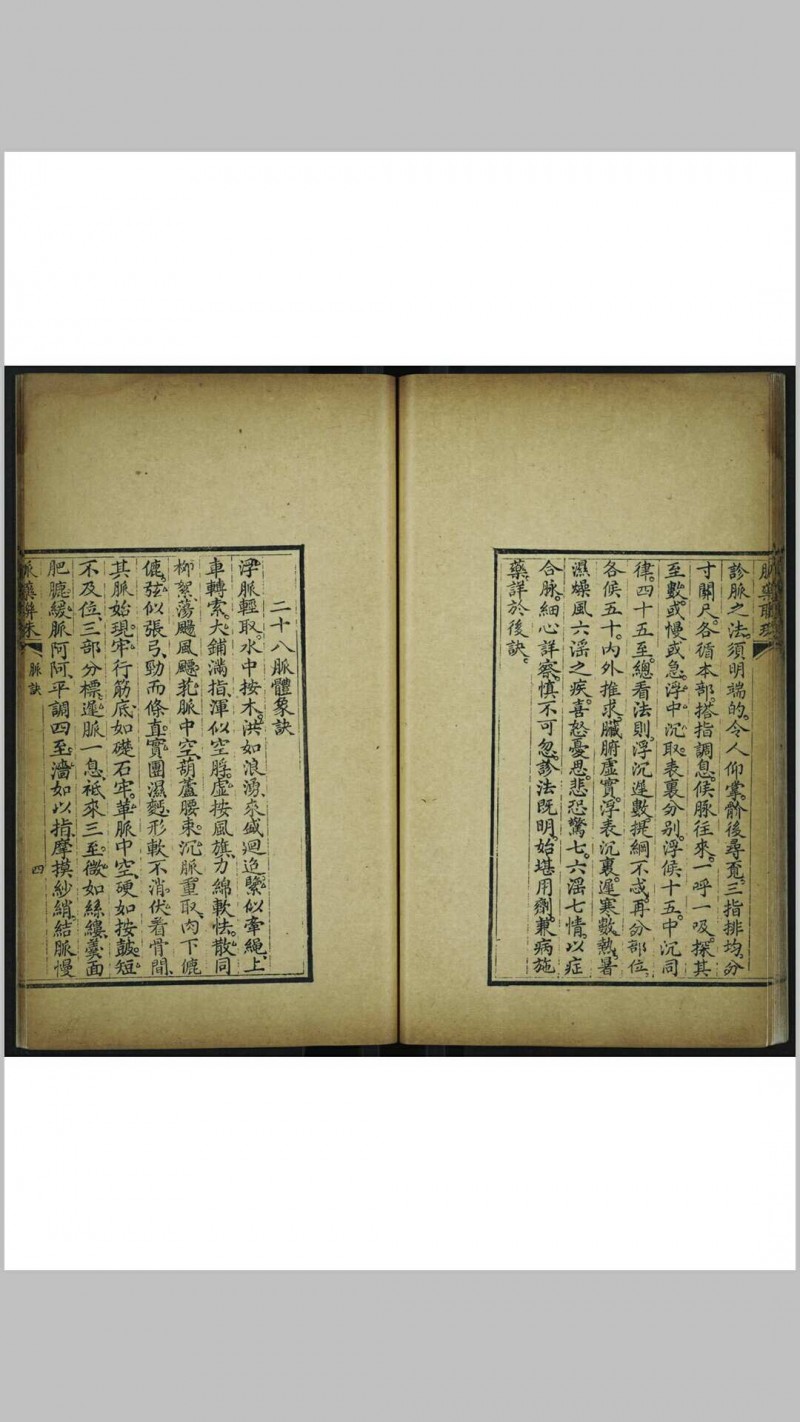 診脈之法。須明端的。令人仰掌。骱後尋覓。三指排均。分
寸關尺。各循本部。搭指調息。候脈往來。一呼一吸。探其
至數。或慢或急。浮中沉取。表裏分別。浮候十五。中沉同
律。四十五至。總看法則。浮沉遲數。提綱不忒。再分部位。
各候五十。內外推求。臟腑虛實。浮表沉裏。遲寒數熱。暑
濕燥風。六淫之疾。喜怒憂思。悲恐驚七。六淫七情。以症
合脉。細心詳察。慎不可忽。診法既明。始堪用劑。兼病施
藥。詳於後訣。
二十八脈體象訣
浮脈輕取。水中按木。洪如浪湧。來盛迴迨。緊似牽繩。上
車轉索。大鋪滿指。渾似空脬。虛按風旗。力綿軟怯。散同
柳絮。蕩颺風飃。芤脈中空。葫蘆腰束。沉脈重取。肉下儦
儦。弦似張弓。勁而條直。實團濕麪。形軟不消。伏看骨間。
其脈始現。牢行筋底。如礎石牢。革脈中空。硬如按鼓。短
不及位。三部分標。遲脈一息。祗來三至。微如絲縷。羹面
肥臕。緩脈阿阿。平調四至。濇如以指。摩摸紗綃。結脈慢
脈訣
四